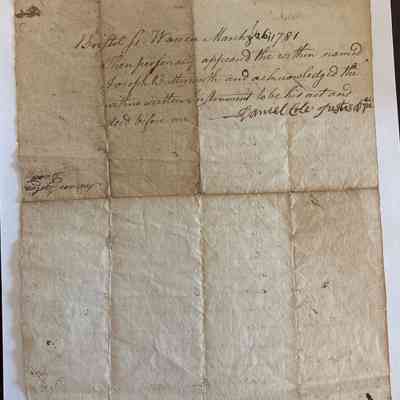 Bristol ss. Warren March ye 26, 1781
Then personaly appeared the within named
Joseph Butterworth and acknowledged the
within written Instrument to be his act and
deed before me
Daniel Cole Justis Peace